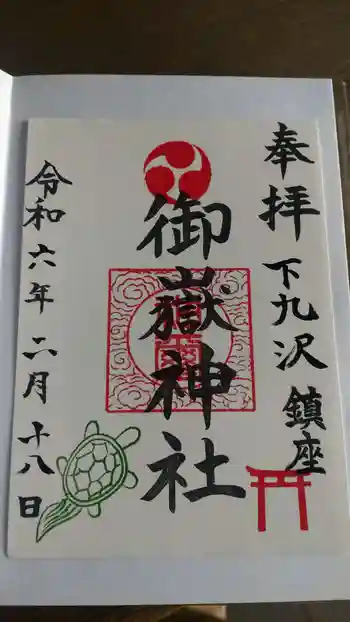 奉拝
下九沢 鎮座
御嶽神社
令和六年 二月 十八日